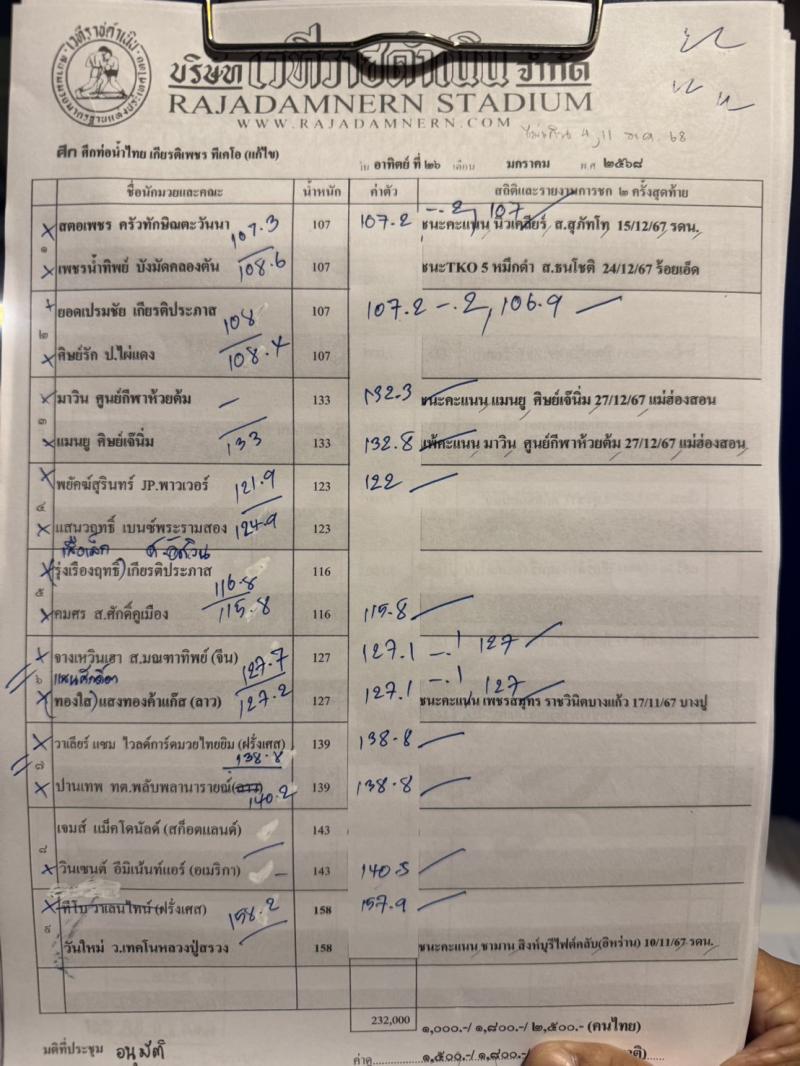 บริษัท เวทีราชดำเนิน จำกัด
RAJADAMNERN STADIUM
WWW.RAJADAMNERN.COM
ศึก ศึกท่อน้ำไทย เกียรติเพชร ทีเคโอ (แก้ไข)
วัน อาทิตย์ ที่ ๒๖ เดือน มกราคม พ.ศ ๒๕๖๘
ชื่อนักมวยและคณะ น้ำหนัก ค่าตัว สถิติและรายงานการชก ๒ ครั้งสุดท้าย
× สตอเพชร ครัวทักษิณตะวันนา 107.3 107 107.2 -.2, 107 ชนะคะแนน นิวเคลียร์ ส.สุภัทโท 15/12/67 รดน.
๑
× เพชรน้ำทิพย์ บังมัดคลองตัน 108.6 107 ชนะTKO 5 หมึกดำ ส.ธนโชติ 24/12/67 ร้อยเอ็ด
× ยอดเปรมชัย เกียรติประภาส 108 107 107.2 -.2, 106.9
๒
× ศิษย์รัก ป.ไผ่แดง 108.4 107
× มาวิน ศูนย์กีฬาห้วยต้ม – 133 132.3 ชนะคะแนน แมนยู ศิษย์เจ๊นิ่ม 27/12/67 แม่ฮ่องสอน
๓
× แมนยู ศิษย์เจ๊นิ่ม 133 133 132.8 แพ้คะแนน มาวิน ศูนย์กีฬาห้วยต้ม 27/12/67 แม่ฮ่องสอน
× พยัคฆ์สุรินทร์ JP.พาวเวอร์ 121.9 123 122
๔
× แสนวฤทธิ์ เบนซ์พระรามสอง 124.9 123
เสือเล็ก
× (รุ่งเรืองฤทธิ์) เกียรติประภาส 116.8 116
๕
× คมศร ส.ศักดิ์คูเมือง 115.8 116 115.8
× จางเหวินเฮา ส.มณฑาทิพย์ (จีน) 127.7 127 127.1 -.1 127
๖
× (ทองใส) แสงทองค้าแก๊ส (ลาว) 127.2 127 127.1 -.1 127 ชนะคะแนน เพชรสมุทร ราชวินิตบางแก้ว 17/11/67 บางปู
× วาเลียร์ แซม ไวลด์การ์ดมวยไทยยิม (ฝรั่งเศส) 138.8 139 138.8
๗
× ปานเทพ ทต.พลับพลานารายณ์(ลาว) 140.2 139 138.8
เจมส์ แม็คโดนัลด์ (สก็อตแลนด์) 143
๘
× วินเซนต์ อีมิเน้นท์แอร์ (อเมริกา) – 143 140.5
× ทีโบ วาเลนไทน์ (ฝรั่งเศส) 158.2 158 157.9
๙
วันใหม่ ว.เทคโนหลวงปู่สรวง 158 ชนะคะแนน ซามาน สิงห์บุรีไฟต์คลับ(อิหร่าน) 10/11/67 รดน.
232,000 ๑,๐๐๐.-/ ๑,๘๐๐.-/ ๒,๕๐๐.- (คนไทย)
มติที่ประชุม อนุมัติ ค่าดู ๑,๕๐๐.-/ ๑,๘๐๐.-/